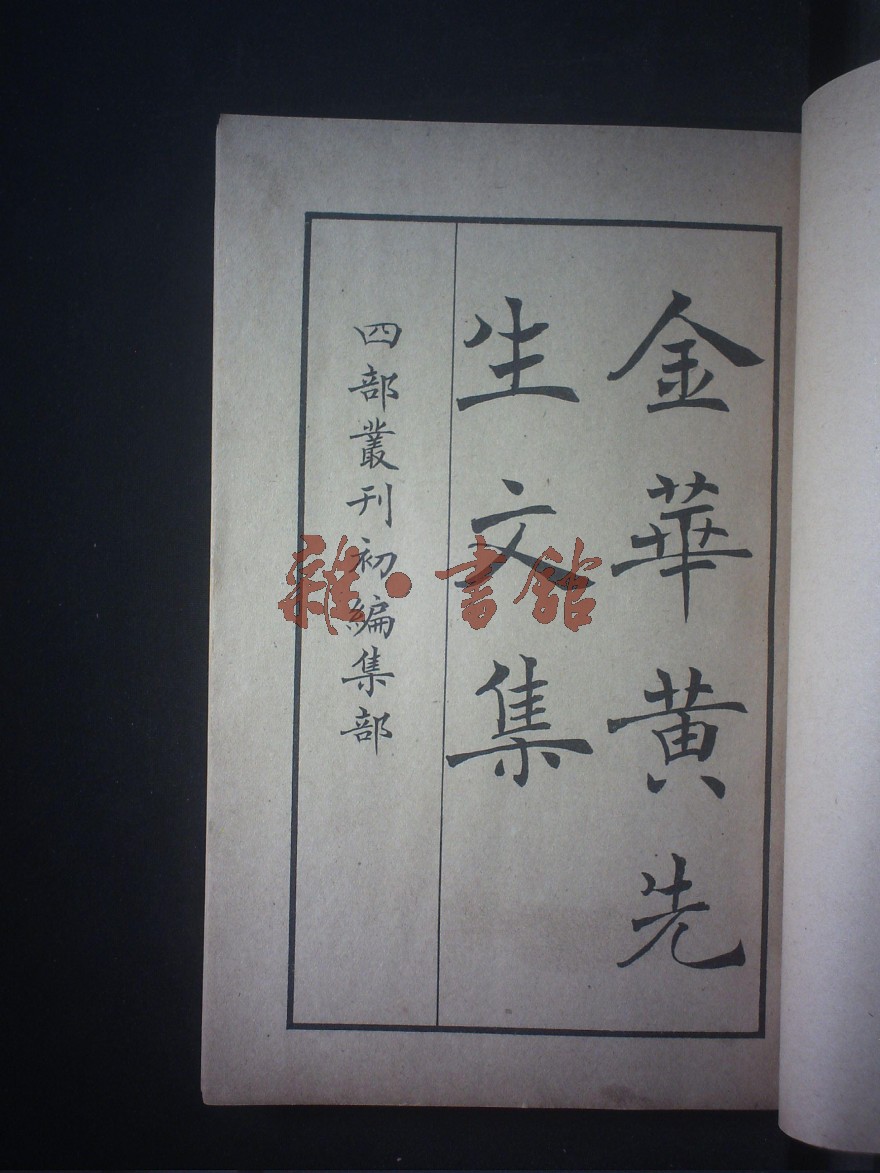 金華黄先
生文集
四部叢刊初編集部
雜·書館